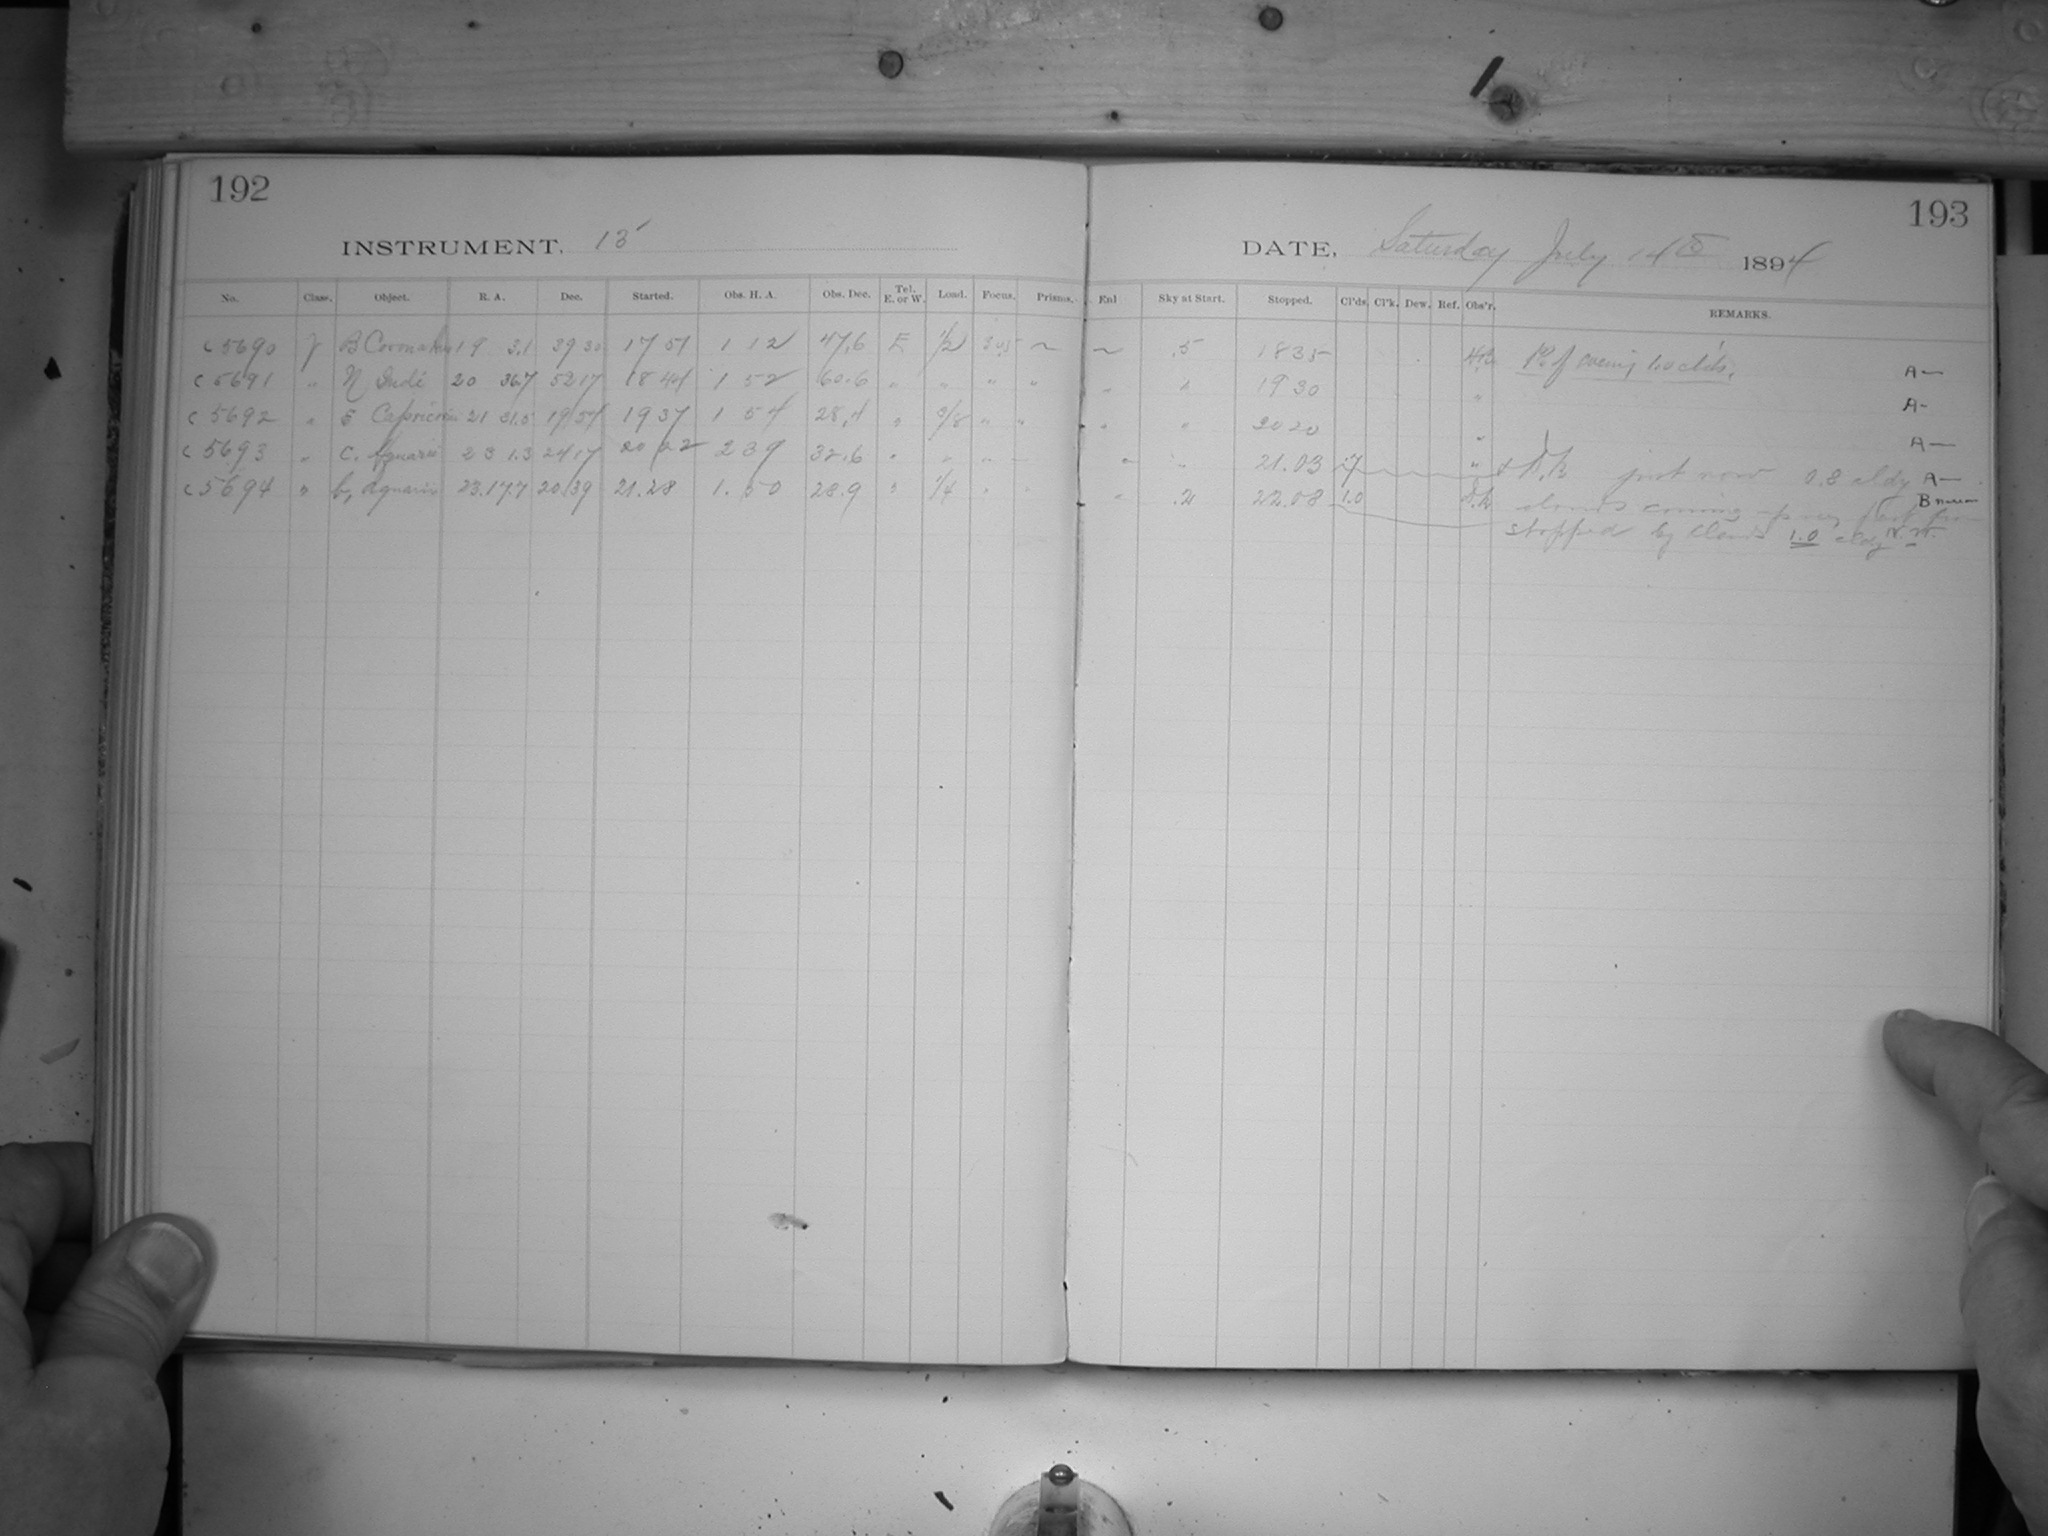 192
INSTRUMENT, 13
No. Class. Object. R. A. Dec. Started. Obs. H. A. Obs. Dec. Tel. E. or W. Load. Focus. Prisms.
c 5690 B Coronae 19 3.1 39 30 17 51 1 12 47.6 E 1/2 ~
c 5691 " N Indi 20 36.7 52 17 18 44 1 52 60.6 " " " "
c 5692 " 21 31.5 19 54 19 37 1 54 28.4 " " "
c 5693 " c. Aquarii 23 1.3 24 17 20 22 2 39 32.6 " " "
c 5694 " b, Aquarii 23.17.7 20.39 21.28 1.50 28.9 " 1/4
193
DATE, Saturday July 14th 1894
Enl Sky at Start. Stopped. Cl'ds. Cl'k. Dew. Ref. Obs'r. REMARKS.
~ .5 18 35 P. of evening 1.0 A—
" " 19 30 " A-
" " 20 20 " A—
" " 21.03 .7 " just now 0.8 cldy A—
" .2 22.08 1.0 clouds coming up very B
stopped by clouds 1.0 cldy